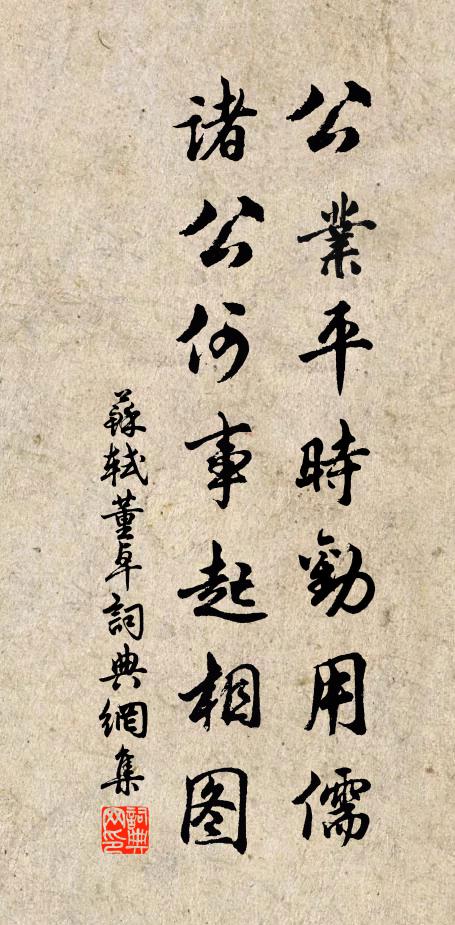 公業平時勸用儒
诸公何事起相图
蘇軾董卓詞典網集
詞典网印